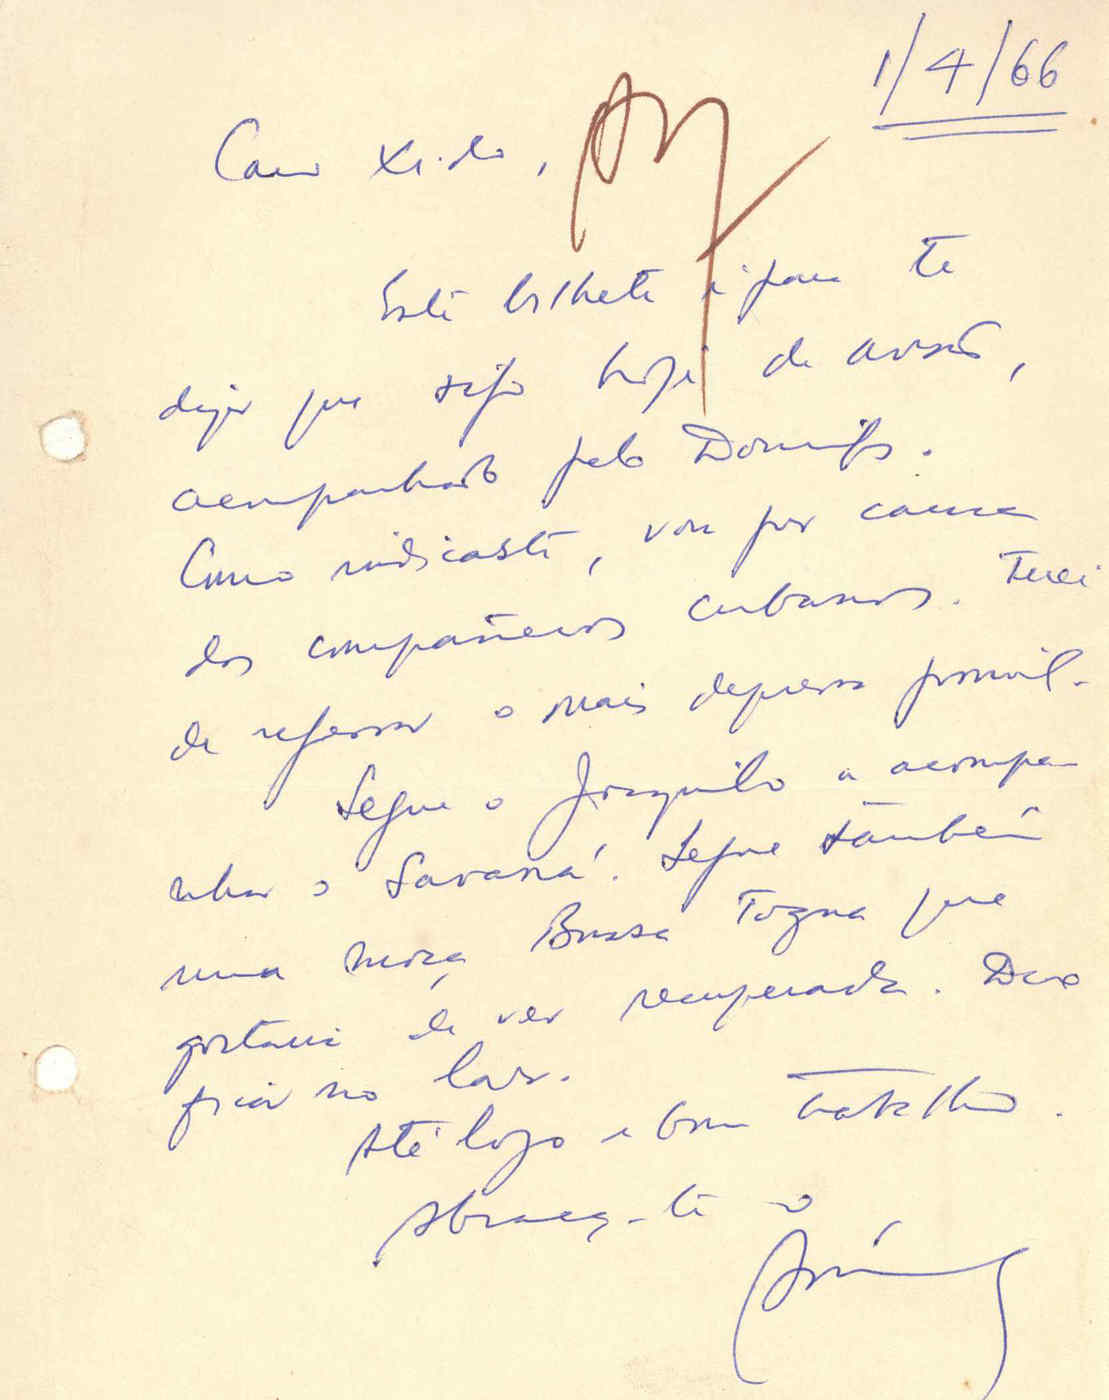 1/4/66
Caro Xido,
Este bilhete é para te
dizer que sigo hoje de avião,
acompanhado pelo Domingos.
Como indicaste, vou por causa
dos compañeros cubanos. Terei
de regressar o mais depressa possível.
Segue o Joaquim a acompa-
nhar o Savaná. Segue também
uma moça Bussa Togna que
gostaria de ver recuperada. Deve
ficar no lar.
Até logo e bom trabalho.
Abraça-te o